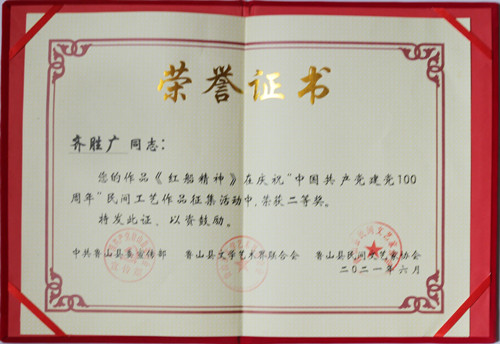 荣誉证书
齐胜广同志：
您的作品《红船精神》在庆祝"中国共产党建党100
周年"民间工艺作品征集活动中，荣获二等奖。
特发此证，以资鼓励。
中共鲁山县委宣传部 鲁山县文学艺术界联合会 鲁山县民间工艺家协会
二〇二一年六月